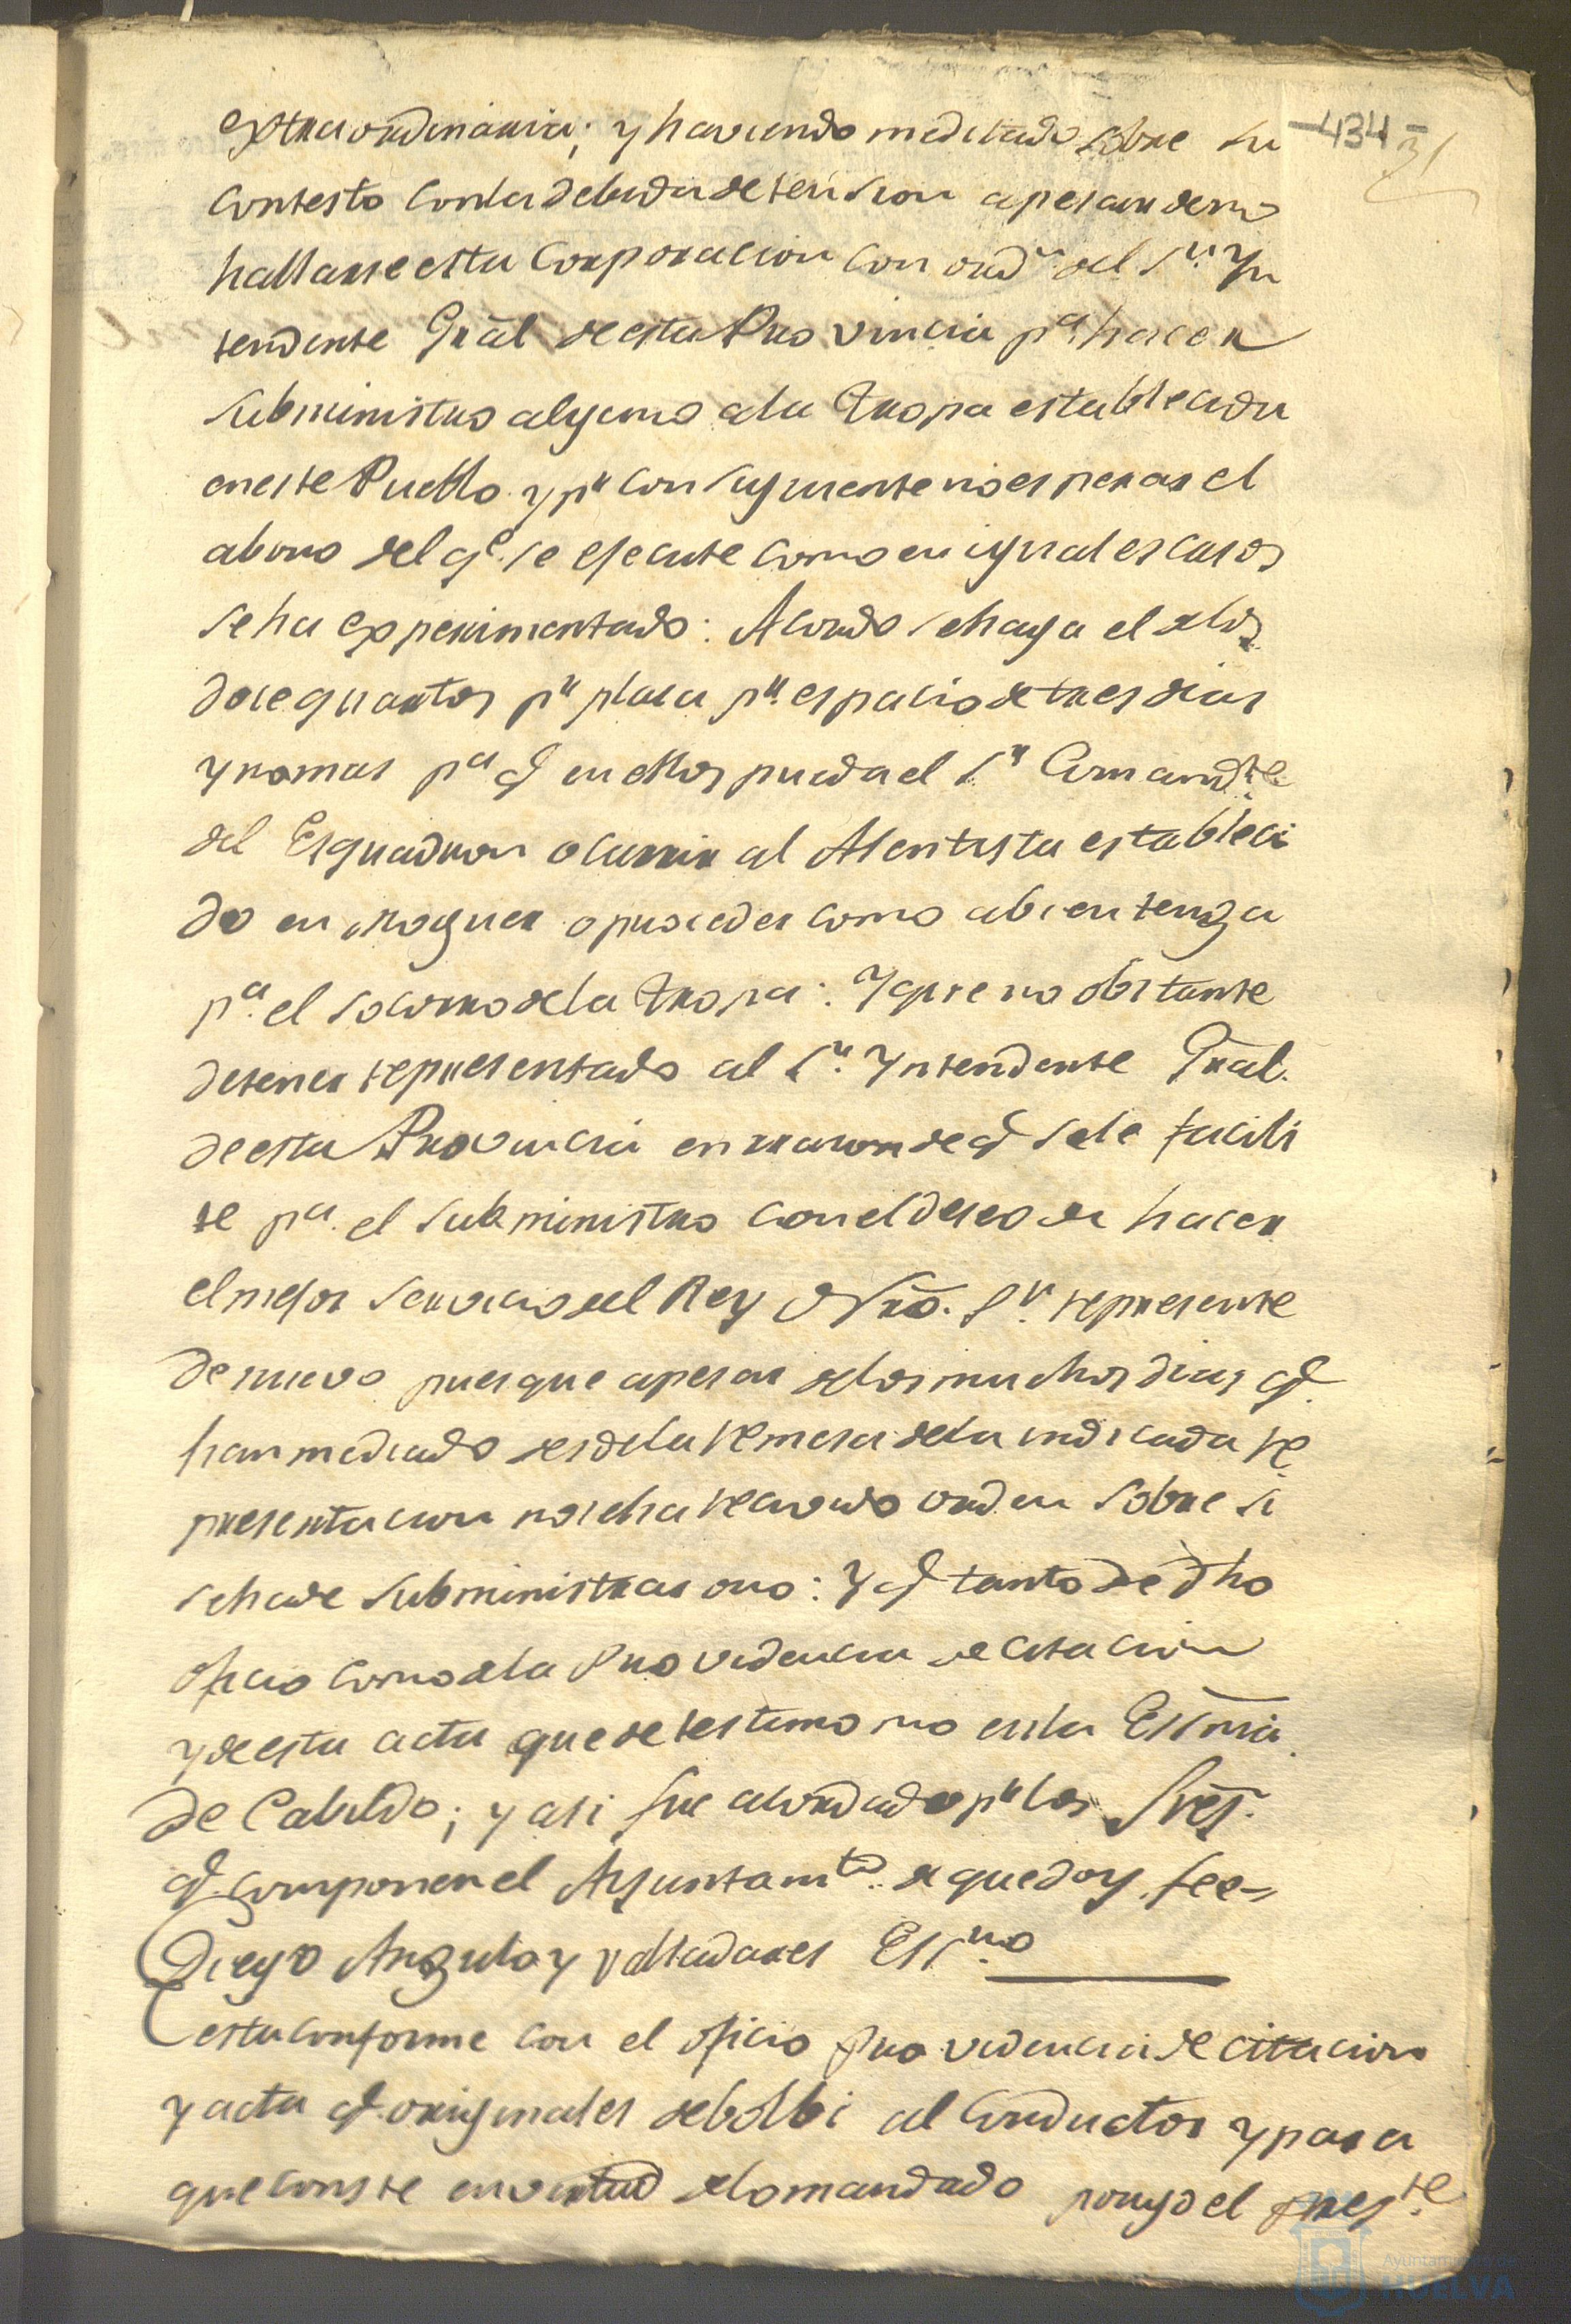 extraordinaria; y haviendo meditado sobre su
-434-
contesto con la debida detension a pesar de no
hallarse esta Corporacion con ordn. del Sr. Yn
tendente Gral de esta Provincia pa. hacer
subministro alguno a la tropa establecida
en este Pueblo y pr consiguiente no esperar el
abono del qe. se ejecute como en iguales casos
se ha experimentado: Acordo se haga el de los
doce quartos pr plasa pr. espacio de tres dias
y no mas pa q en ellos pueda el Sr Comandte.
del Esquadron ocurrir al Asentista estableci
do en Moguer o proceder como a bien tenga
pa. el socorro de la tropa: Y que no obstante
de tener representado al Sr. Yntendente Gral.
de esta Provincia en rason de q se le facili
te pa. el subministro con el deseo de hacer
el mejor servicio del Rey Nro. Sr. represente
de nuevo pues que a pesar de los muchos dias q.
han mediado desde la remesa de la indicada re
presentacion no se ha recivido orden sobre si
se ha de subministrar o no: Y q tanto de dho
oficio como de la Providencia de citacion
y de esta acta quede testimonio en la Essnia.
de Cabildo; y asi fue acordado pr los Sres.
q. componen el Ayuntamto. de que doy fee-
Diego Angulo y Valladares Essno
esta conforme con el oficio providencia de citacion
y acta q. originales debolbi al Conductor y para
que conste en virtud de lo mandado pongo el preste.
Ayuntamiento de
HUELVA